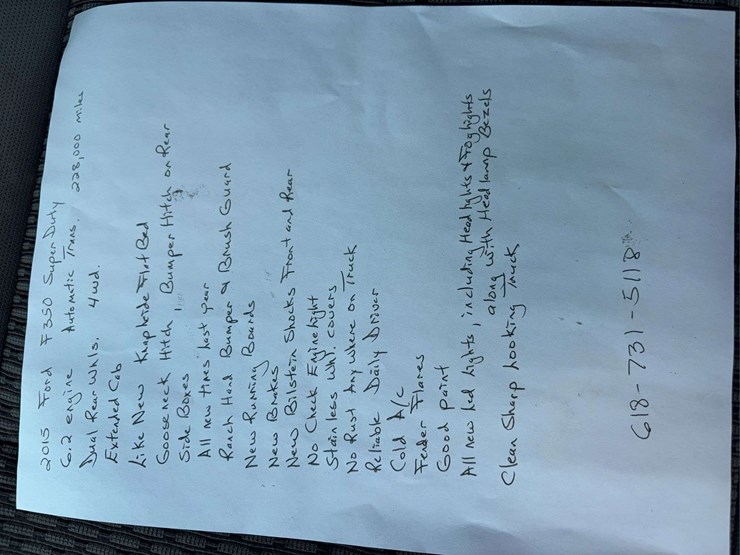 2015 Ford F350 Super Duty
6.2 engine Automatic Trans. 228,000 miles
Dual Rear Whls. 4wd.
Extended Cab
Like New Knapheide Flat Bed
Gooseneck Hitch, Bumper Hitch on Rear
Side Boxes
All new tires last year
Ranch Hand Bumper & Brush Guard
New Running Boards
New Brakes
New Bilstein Shocks Front and Rear
No Check Engine light
Stainless Whl. covers
No Rust Any Where on Truck
Reliable Daily Driver
Cold A/c
Fender Flares
Good paint
All new led lights, including Head lights & Fog lights
along with Headlamp Bezels
Clean Sharp Looking Truck
618-731-5118